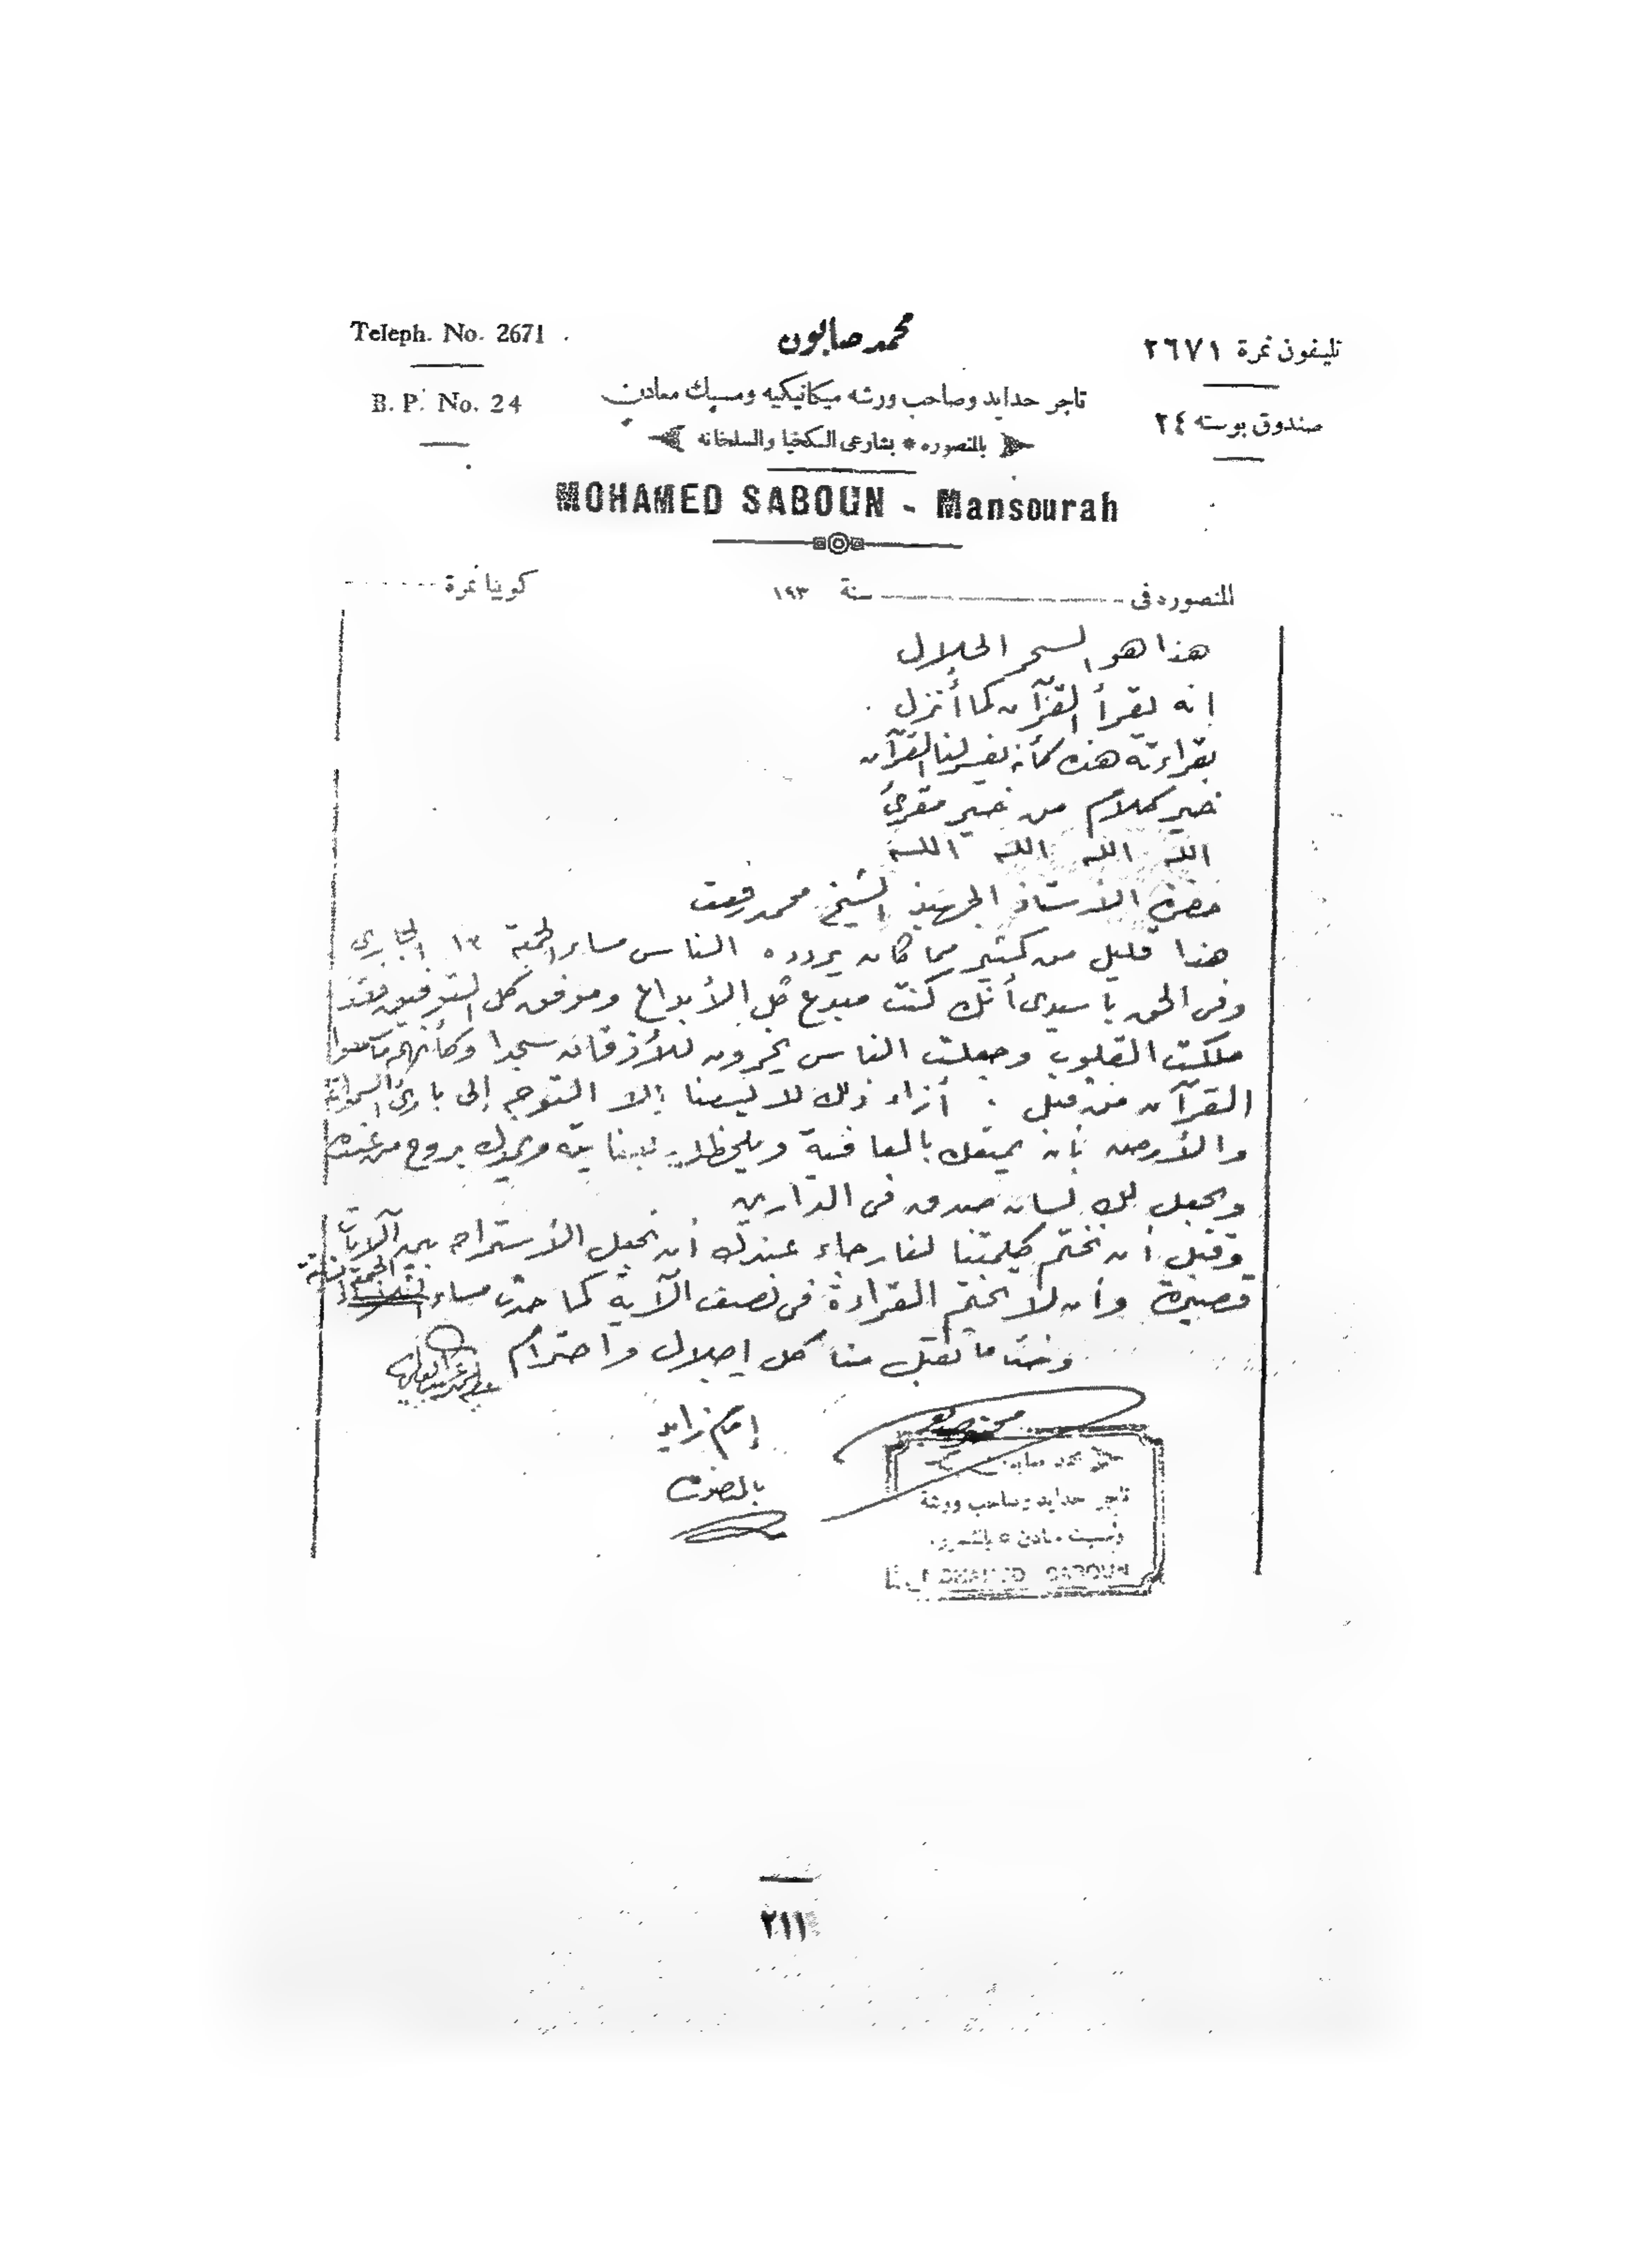 Teleph. No. 2671
محمد صابون
تليفون نمرة ٢٦٧١
B. P. No. 24
تاجر حدايد وصاحب ورشه ميكانيكيه ومسبك معادن
صندوق بوسته ٢٤
بالمنصوره * بشارعى السكخيا والسلخانه
MOHAMED SABOUN - Mansourah
المنصوره فى سنة ١٩٣
كوبيا نمرة
هذا هو السحر الحلال
انه يقرأ القرآن كما أُنزل .
بقراءته هذه كأنه يفسر لنا القرآن
خير كلام من خير مقرئ
الله الله الله الله
حضرة الأستاذ الجهبذ الشيخ محمد رفعت
هذا قليل من كثير مما كان يردده الناس مساء الجمعة ١٣ الجارى
وفى الحق يا سيدى أنك كنت مبدع كل الأبداع وموفق كل التوفيق فقد
ملكت القلوب وجعلت الناس يخرون للأذقان سجدا وكأنهم ما سمعوا
القرآن من قبل . أزاء ذلك لا يسعنا إلا التوجه إلى بارئ السموات
والأرض بأن يمتعك بالعافية ويلحظك بعنايته ويمدك بروح من عنده
ويجعل لك لسان صدق فى الدارين
وقبل أن نختم كلمتنا لنا رجاء عندك أن تجعل الأستراحه بين الآيات
قصيرة وأن لا تختم القراءة فى نصف الآية كما حدث مساء الجمعة
وختاما تقبل منا كل إجلال واحترام
إمام زايد
بالمنصورة
محمد صابون
تاجر حدايد وصاحب ورشة
ومسبك معادن * بالمنصوره
MOHAMED SABOUN
٢١١